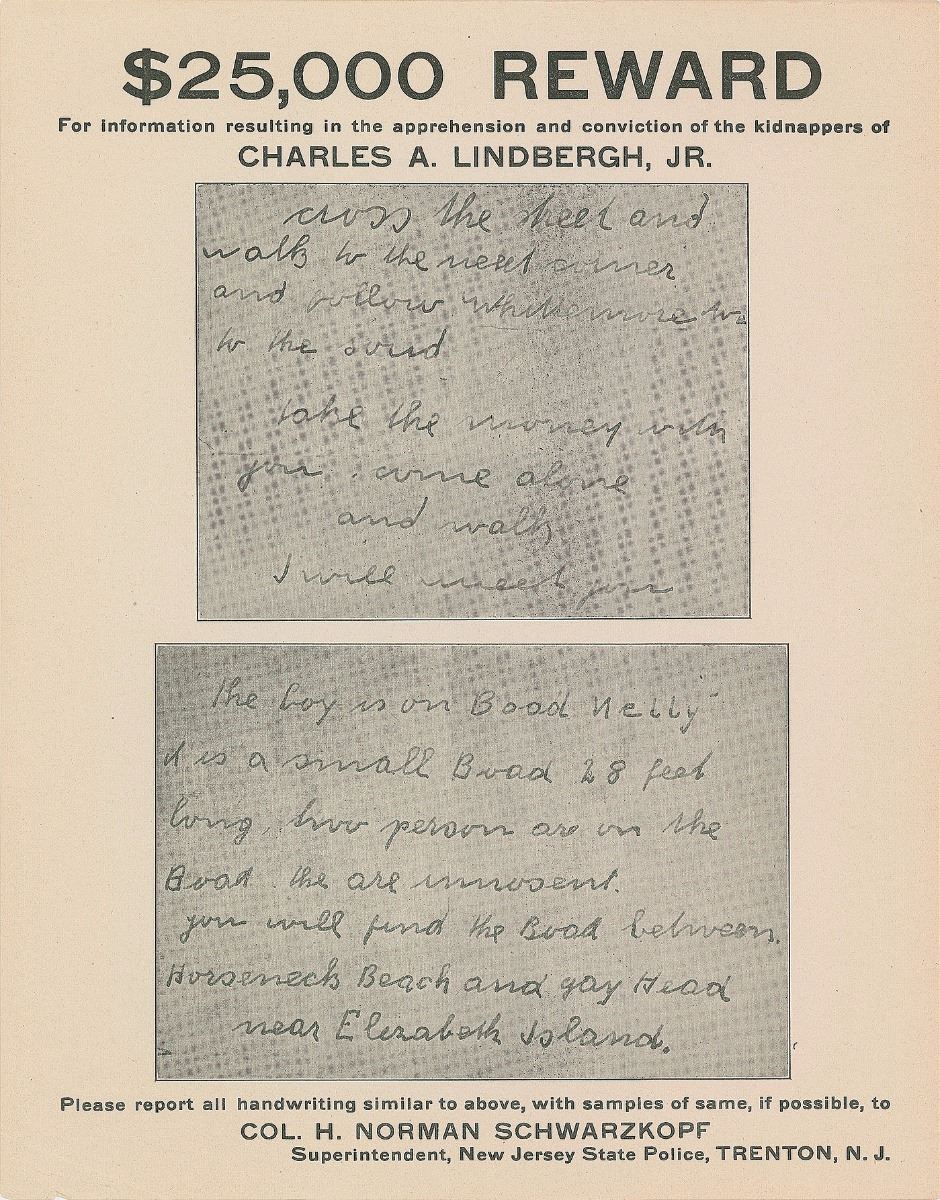 $25,000 REWARD
For information resulting in the apprehension and conviction of the kidnappers of
CHARLES A. LINDBERGH, JR.
cross the street and
walk to the next corner
and follow whittemore Av.
to the soud
take the money with
you. come alone
and walk
I will meet you
the boy is on Boad Nelly
it is a small Boad 28 feet
long, two person are on the
Boad. the are innosent.
you will find the Boad between
Horseneck Beach and gay Head
near Elizabeth Island.
Please report all handwriting similar to above, with samples of same, if possible, to
COL. H. NORMAN SCHWARZKOPF
Superintendent, New Jersey State Police, TRENTON, N. J.